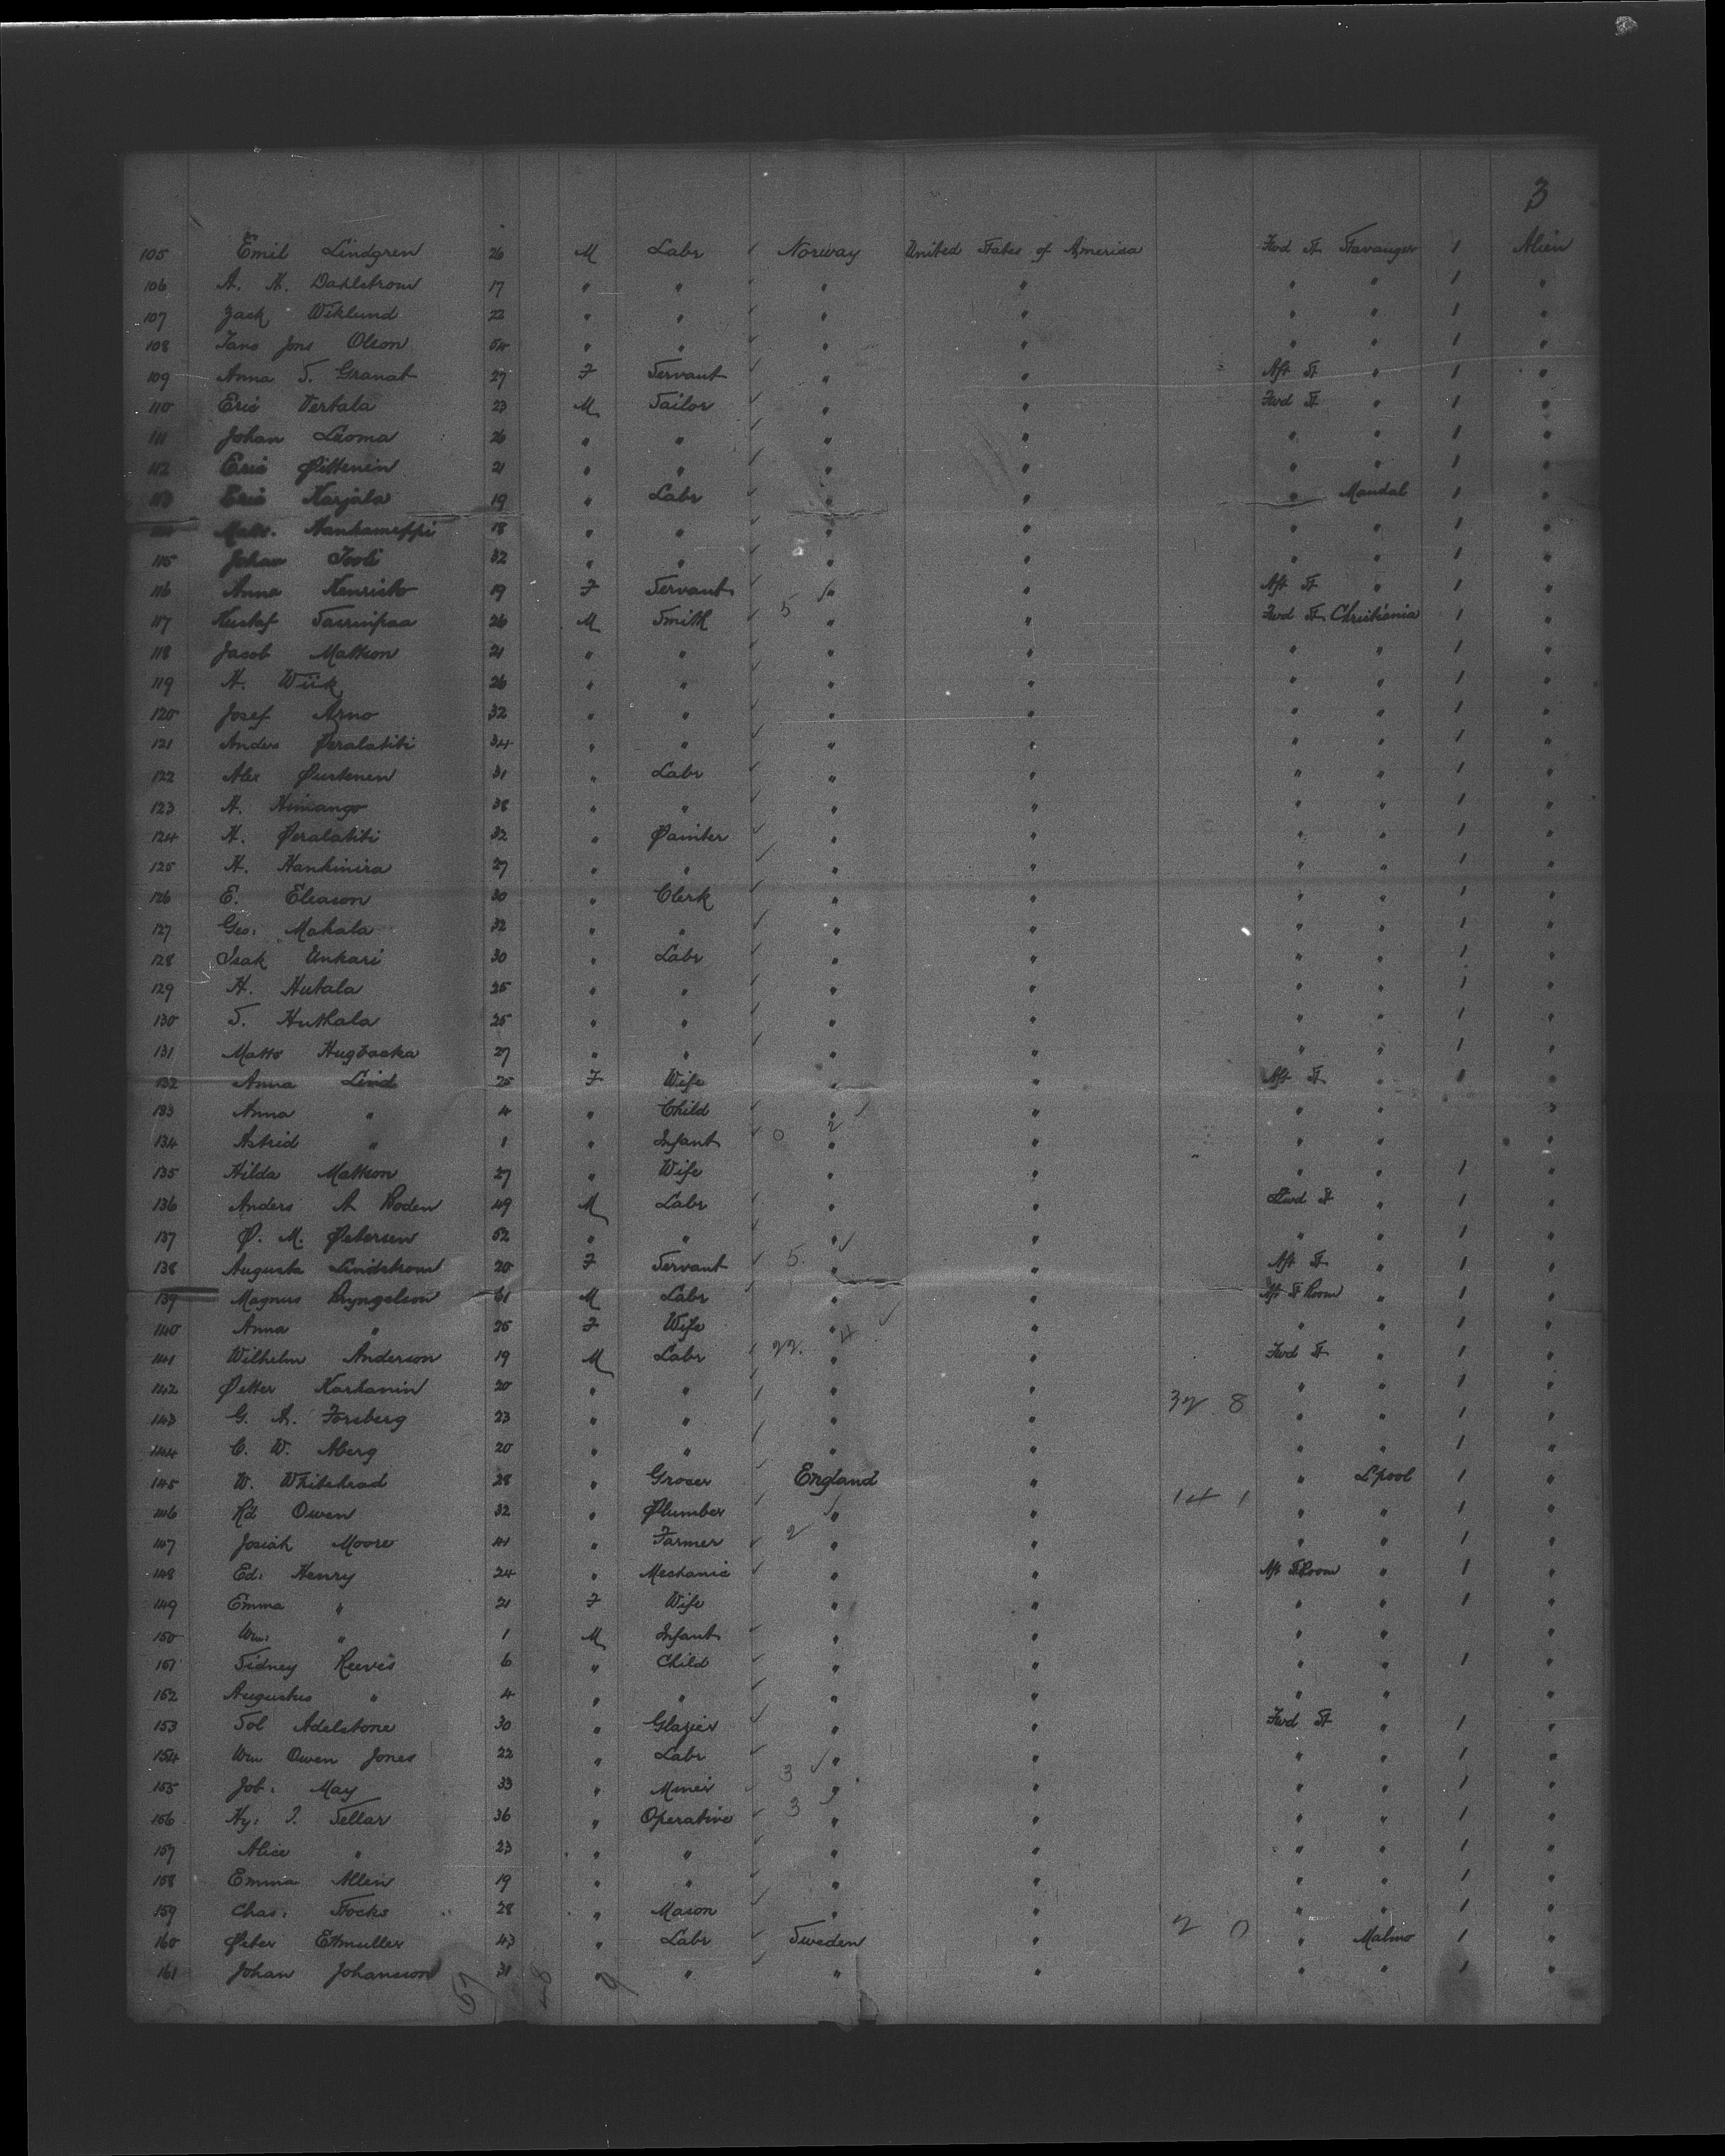 3
105 Emil Lindgren 26 M Labr Norway United States of America Fwd St Stavanger 1 Alien
106 A. H. Dahlstrom 17 " " " " " " 1 "
107 Jack Wiklund 22 " " " " " " 1 "
108 Jans Jons Olson 54 " " " " " " 1 "
109 Anna S. Granat 27 F Servant " " Aft St " 1 "
110 Eric Vertala 23 M Tailor " " Fwd St " 1 "
111 Johan Luoma 26 " " " " " " 1 "
112 Eric Pittenin 21 " " " " " " 1 "
113 Eric Karjala 19 " Labr " " " Mandal 1 "
Matts. 18 " " " " " " 1 "
115 Johan 32 " " " " " " 1 "
116 Anna 19 F Servant " " Aft St " 1 "
117 Kustaf 26 M Smith 5 " " Fwd St Christiania 1 "
118 Jacob Mattson 21 " " " " " " 1 "
119 A. Wiik 26 " " " " " " 1 "
120 Josef Arno 32 " " " " " " 1 "
121 Anders Peralatiti 34 " " " " " " 1 "
122 Alex Purtenen 31 " Labr " " " " 1 "
123 A. Himango 38 " " " " " " 1 "
124 H. Peralatiti 32 " Painter " " " " 1 "
125 H. 27 " " " " " " 1 "
126 E. Eleason 30 " Clerk " " " " 1 "
127 Geo: Mahala 32 " " " " " " 1 "
128 Isak Unkari 30 " Labr " " " " 1 "
129 H. Hutala 25 " " " " " " 1 "
130 S. Huthala 25 " " " " " " 1 "
131 Matts 27 " " " " " " 1 "
132 Anna Lind 25 F Wife " " Aft St " 1 "
133 Anna " 4 " Child " " " " "
134 Astrid " 1 " Infant 0 2 " " " " "
135 Hilda Mattson 27 " Wife " " " " 1 "
136 Anders A Boden 49 M Labr " " Fwd St " 1 "
137 P. M. Petersen 52 " " " " " " 1 "
138 Augusta Lindstrom 20 F Servant 5 " " Aft St " 1 "
139 Magnus Bryngelson 61 M Labr " " Aft St Room " 1 "
140 Anna " 25 F Wife " " " " 1 "
141 Wilhelm Anderson 19 M Labr 22. 4 " " Fwd St " 1 "
142 Petter Karhanin 20 " " " " 32 8 " " 1 "
143 G. A. Forsberg 23 " " " " " " 1 "
144 C. W. Aberg 20 " " " " " " 1 "
145 W. Whitehead 28 " Grocer England " " L'pool 1 "
146 Rd Owen 32 " Plumber " " 14 1 " " 1 "
147 Josiah Moore 41 " Farmer 2 " " " " 1 "
148 Ed: Henry 24 " Mechanic " " Aft St Room " 1 "
149 Emma " 21 F Wife " " " " 1 "
150 Wm: " 1 M Infant " " " " "
151 Sidney Reeves 6 " Child " " " " 1 "
152 Augustus " 4 " " " " " " "
153 Sol Adelstone 30 " Glazier " " Fwd St " 1 "
154 Wm Owen Jones 22 " Labr " " " " 1 "
155 Job: May 33 " Miner 3 " " " " 1 "
156 Hy: J. Sellar 36 " Operative 3 " " " " 1 "
157 Alice " 23 " " " " " " 1 "
158 Emma Allen 19 " " " " " " 1 "
159 Chas: Stocks 28 " Mason " " " " 1 "
160 Peter Etmuller 43 " Labr Sweden " 2 0 " Malmo 1 "
161 Johan Johansson 31 " " " " " " 1 "